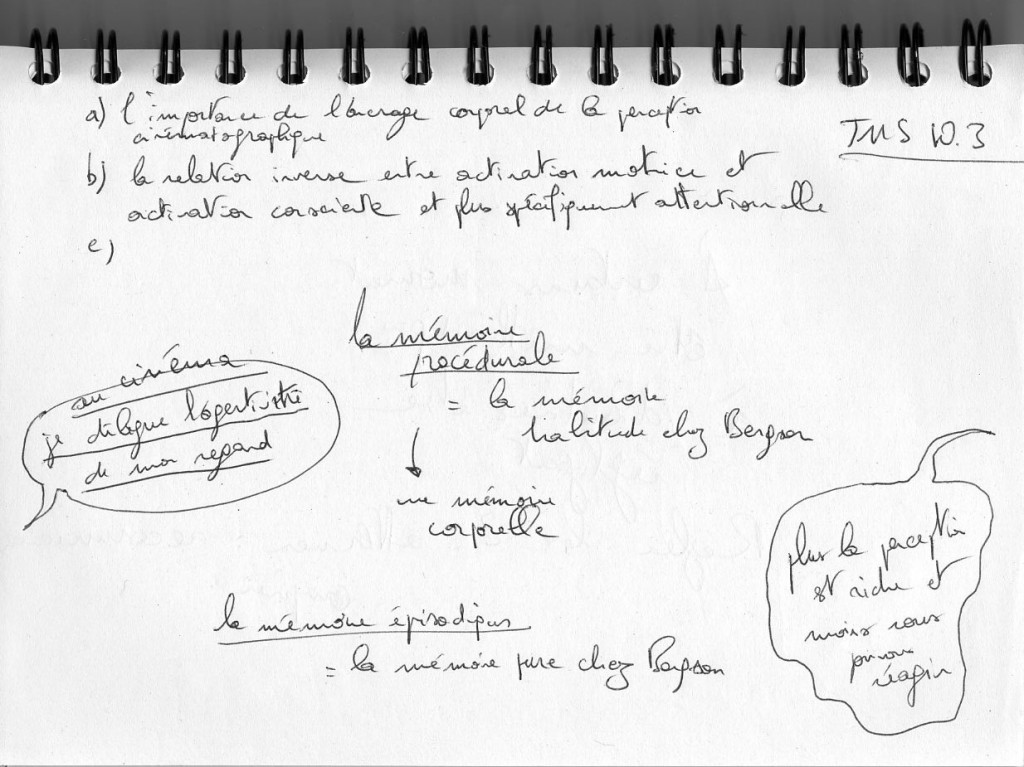 a) l'importance de l'ancrage corporel de la perception
cinématographique
TMS 10.3
b) la relation inverse entre activation motrice et
activation consciente et plus spécifiquement attentionnelle
c)
la mémoire
procédurale
= la mémoire
habitude chez Bergson
une mémoire
corporelle
au cinéma
je délègue l'agentivité
de mon regard
plus la perception
est riche et
moins nous
pouvons
réagir
la mémoire épisodique
= la mémoire pure chez Bergson